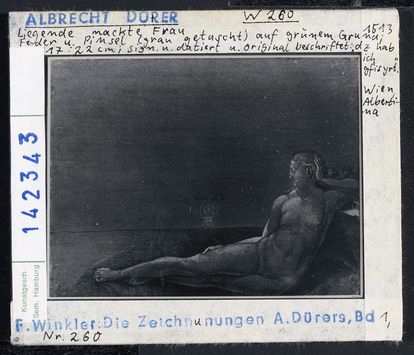 ALBRECHT DÜRER W 260
Liegende nackte Frau 1513
Feder u. Pinsel (grau getuscht) auf grünem Grund;
17·22 cm; sign. u. datiert u. original beschriftet: dz hab
ich
gfisyrt.
Wien
Alberti-
na
142343
Kunstgesch.
Sem. Hamburg
F. Winkler: Die Zeichnunungen A. Dürers, Bd 1,
Nr. 260